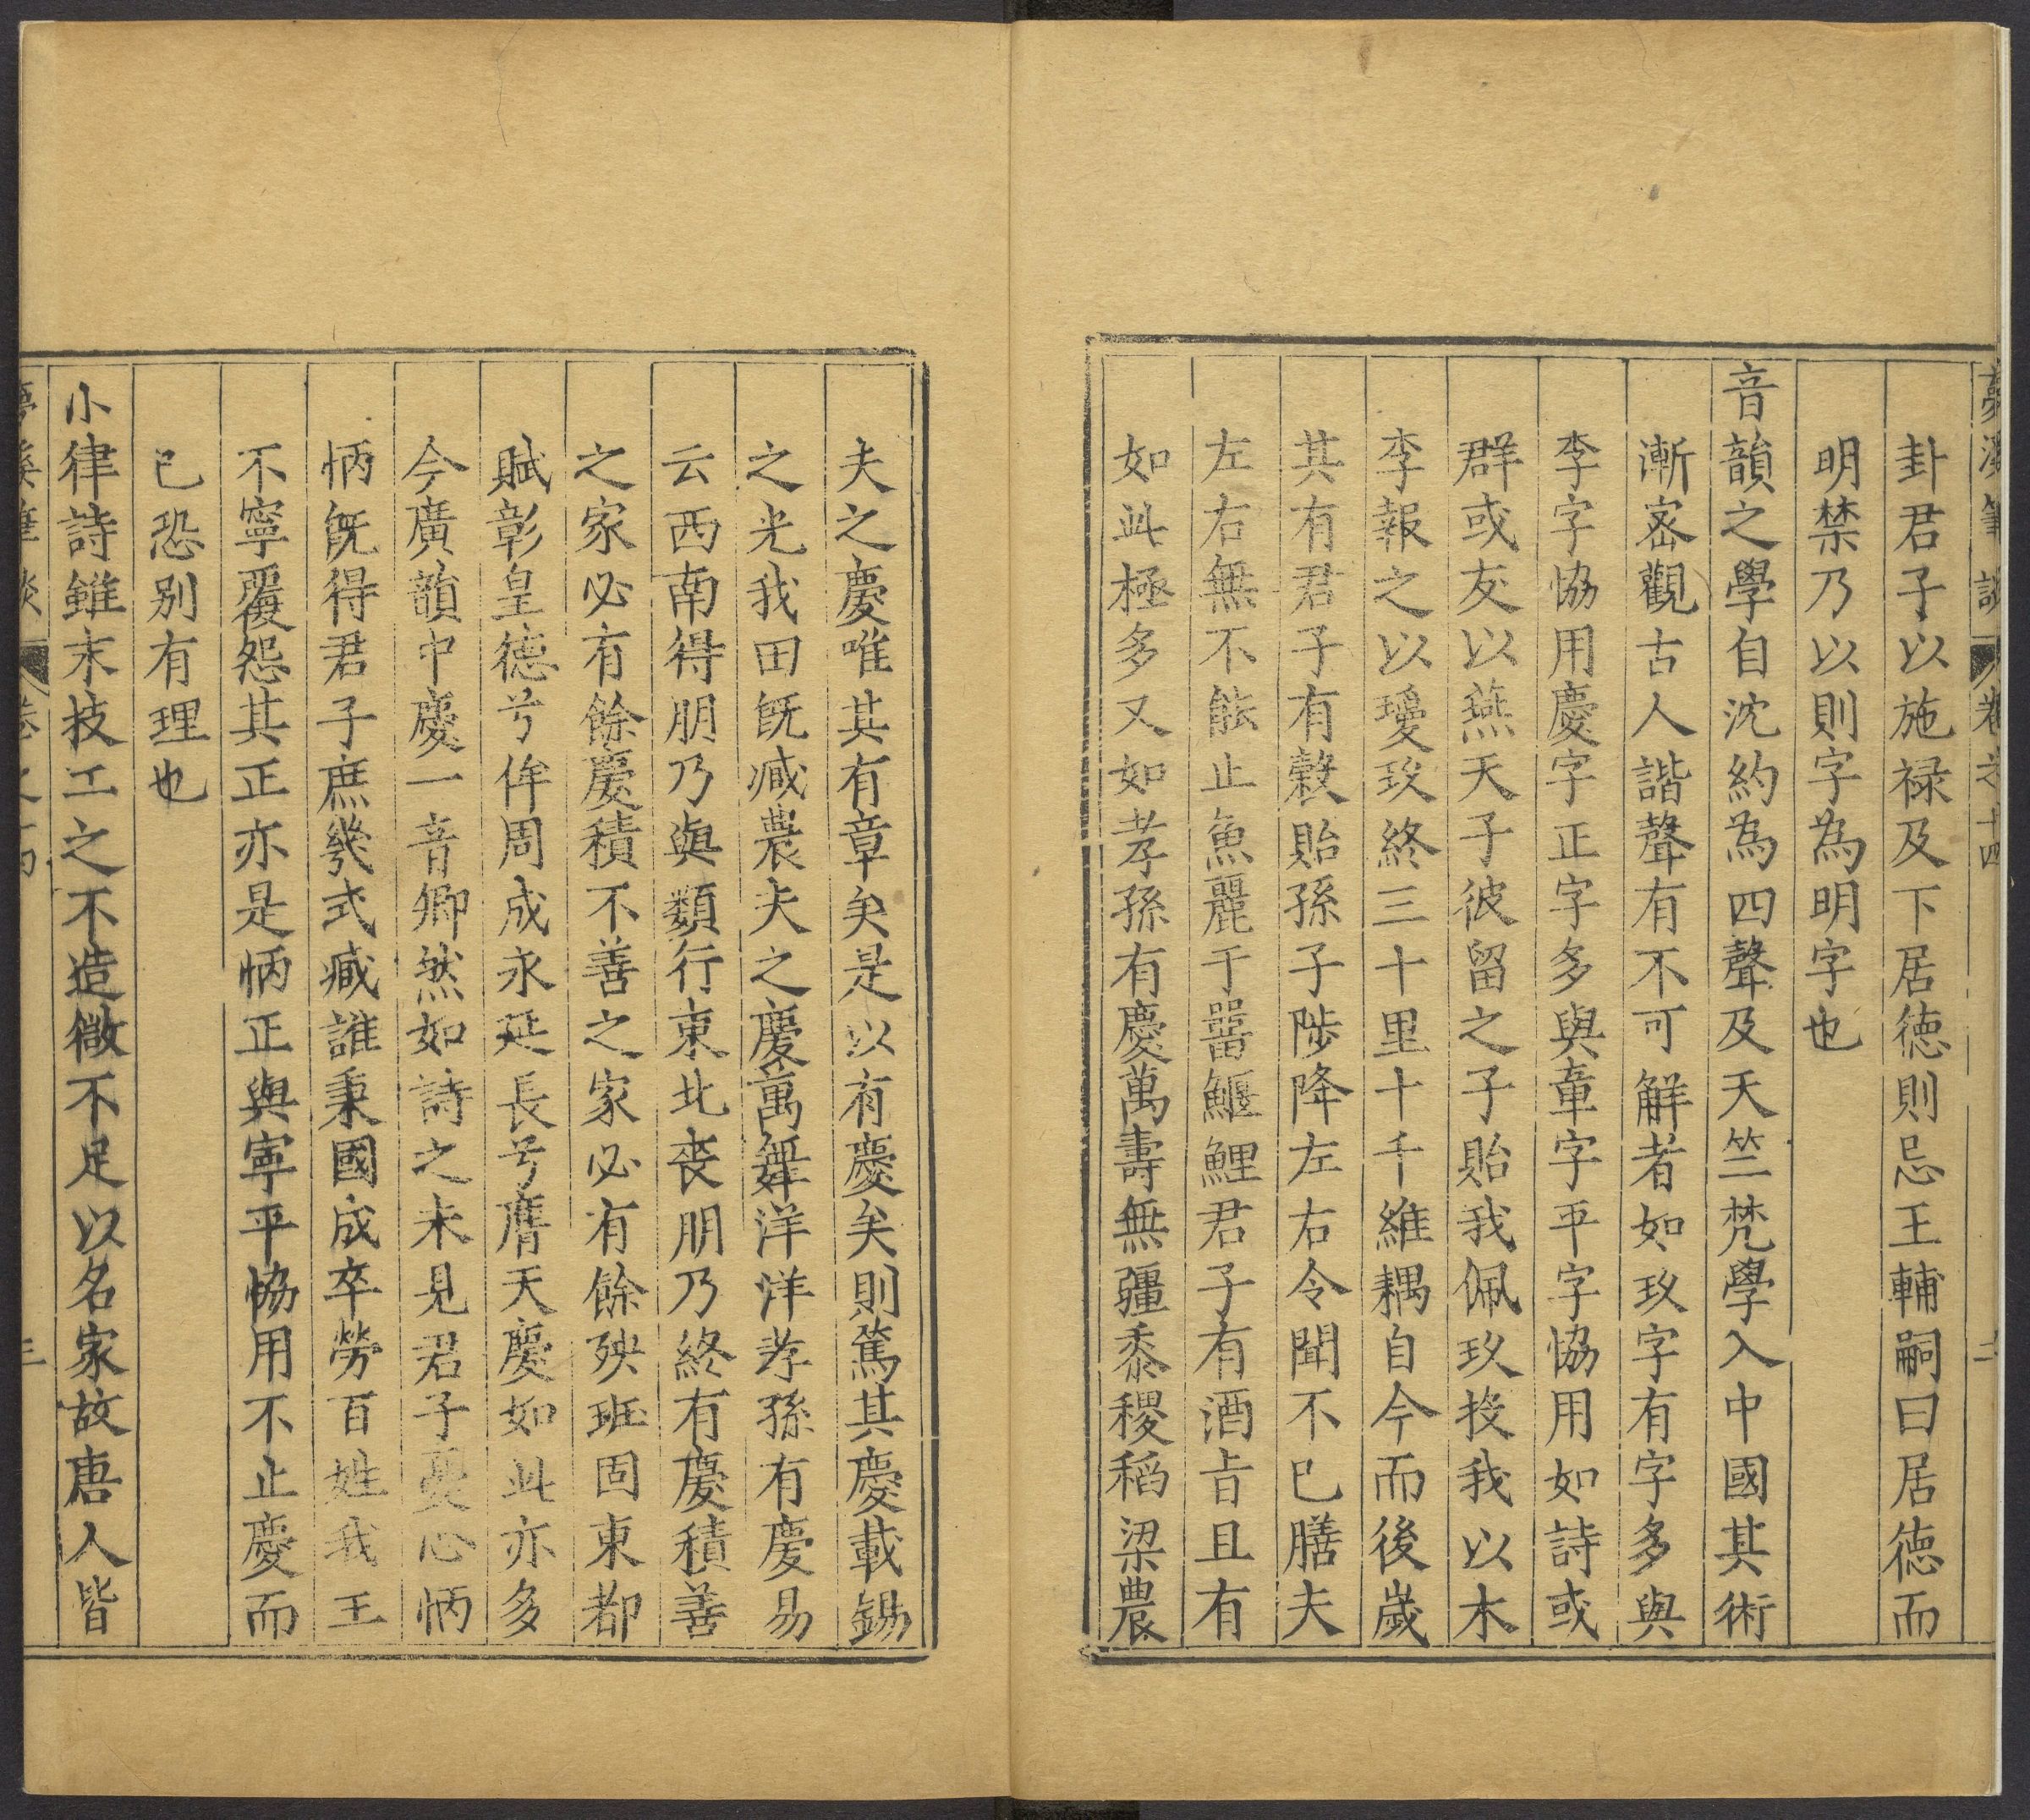 夢溪筆談 卷之十四 二
卦君子以施禄及下居德則忌王輔嗣曰居德而
明禁乃以則字為明字也
音韻之學自沈約為四聲及天竺梵學入中國其術
漸宻觀古人諧聲有不可解者如玖字有字多與
李字協用慶字正字多與章字平字協用如詩或
群或友以燕天子彼留之子貽我佩玖投我以木
李報之以瓊玖終三十里十千維耦自今而後歲
其有君子有穀貽孫子陟降左右令聞不已膳夫
左右無不能止魚麗于罶鰋鯉君子有酒旨且有
如此極多又如孝孫有慶萬壽無疆黍稷稻梁農
夫之慶唯其有章矣是以有慶矣則篤其慶載錫
之光我田旣臧農夫之慶萬舞洋洋孝孫有慶易
云西南得朋乃與類行東北喪朋乃終有慶積善
之家必有餘慶積不善之家必有餘殃班固東都
賦彰皇德兮侔周成永延長兮膺天慶如此亦多
今廣韻中慶一音卿然如詩之未見君子憂心怲
怲旣得君子庶幾式臧誰秉國成卒勞百姓我王
不寧覆怨其正亦是怲正與寧平協用不止慶而
已恐别有理也
小律詩雖末技工之不造微不足以名家故唐人皆
夢溪筆談 卷之十四 三